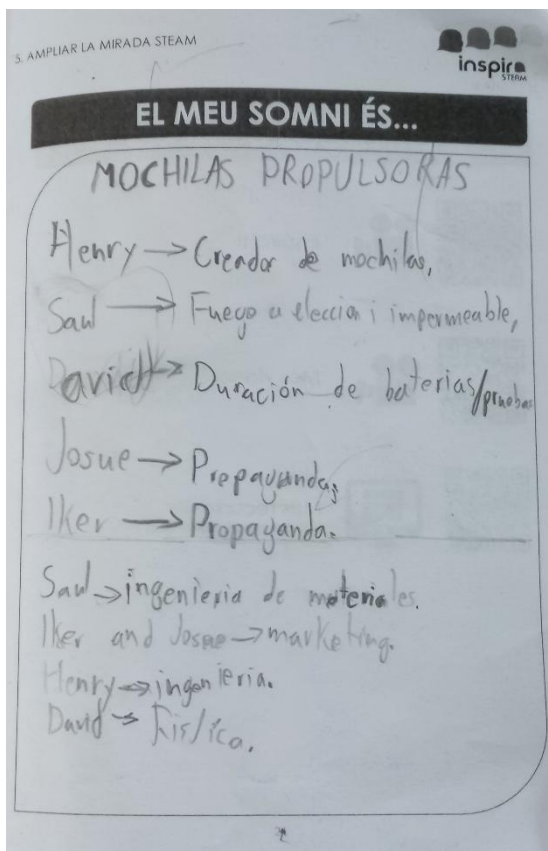 5. AMPLIAR LA MIRADA STEAM
inspira
STEAM
EL MEU SOMNI ÉS...
MOCHILAS PROPULSORAS
Henry → Creador de mochilas,
Saul → Fuego a eleccion i impermeable,
David → Duración de baterias/pruebas
Josue → Propaganda,
Iker → Propaganda.
Saul → ingenieria de materiales.
Iker and Josue → marketing.
Henry → ingenieria.
David →